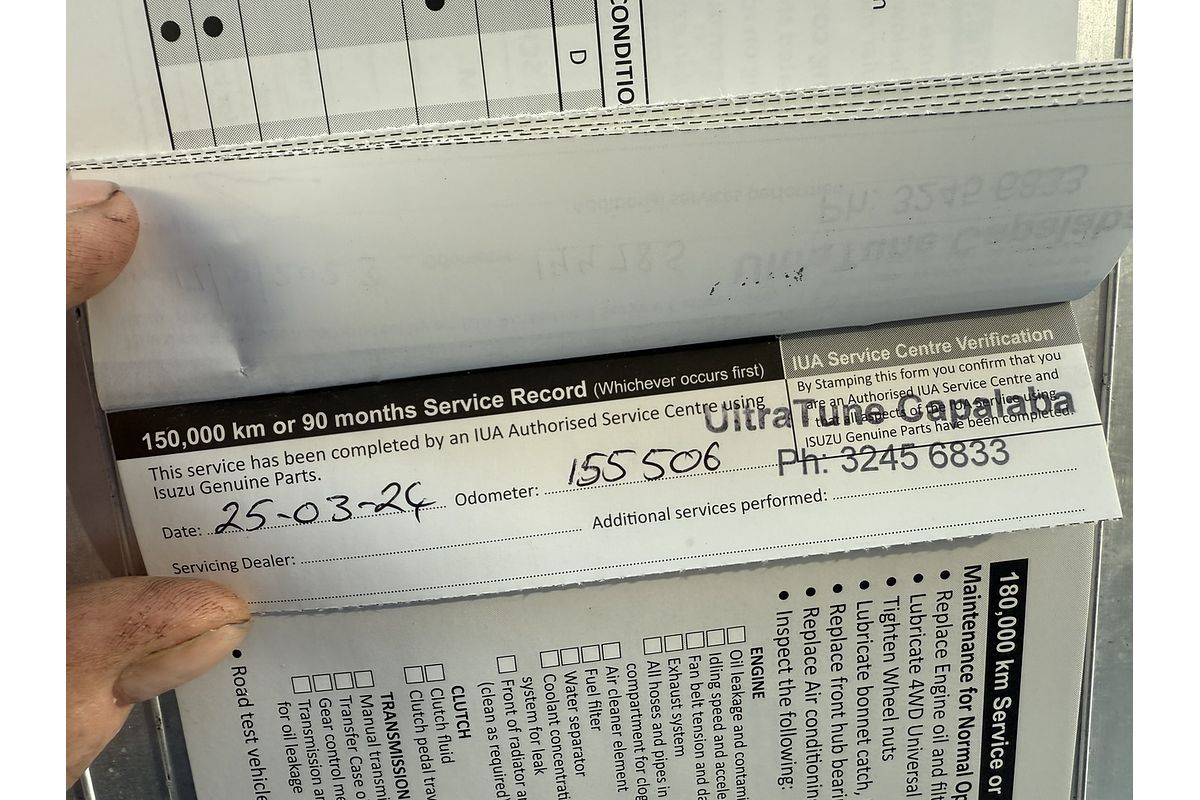 CONDITIO
D
150,000 km or 90 months Service Record (Whichever occurs first)
This service has been completed by an IUA Authorised Service Centre using
Isuzu Genuine Parts.
Date: 25-03-24 Odometer: 155506
Servicing Dealer:
Additional services performed:
IUA Service Centre Verification
By Stamping this form you confirm that you
are an Authorised IUA Service Centre and
that all aspects of the IUA service using
ISUZU Genuine Parts have been completed.
UltraTune Capalaba
Ph: 3245 6833
180,000 km Service or
Maintenance for Normal Op
• Replace Engine oil and filt
• Lubricate 4WD Universal
• Tighten Wheel nuts
• Lubricate bonnet catch,
• Replace front hub beari
• Replace Air conditionin
• Inspect the following:
ENGINE
Oil leakage and contami
Idling speed and accele
Fan belt tension and da
Exhaust system
All hoses and pipes in
compartment for clog
Air cleaner element
Fuel filter
Water separator
Coolant concentrati
system for leak
Front of radiator a
(clean as required
CLUTCH
Clutch fluid
Clutch pedal trav
TRANSMISSION
Manual transmi
Transfer Case o
Gear control me
Transmission an
for oil leakage
• Road test vehicle